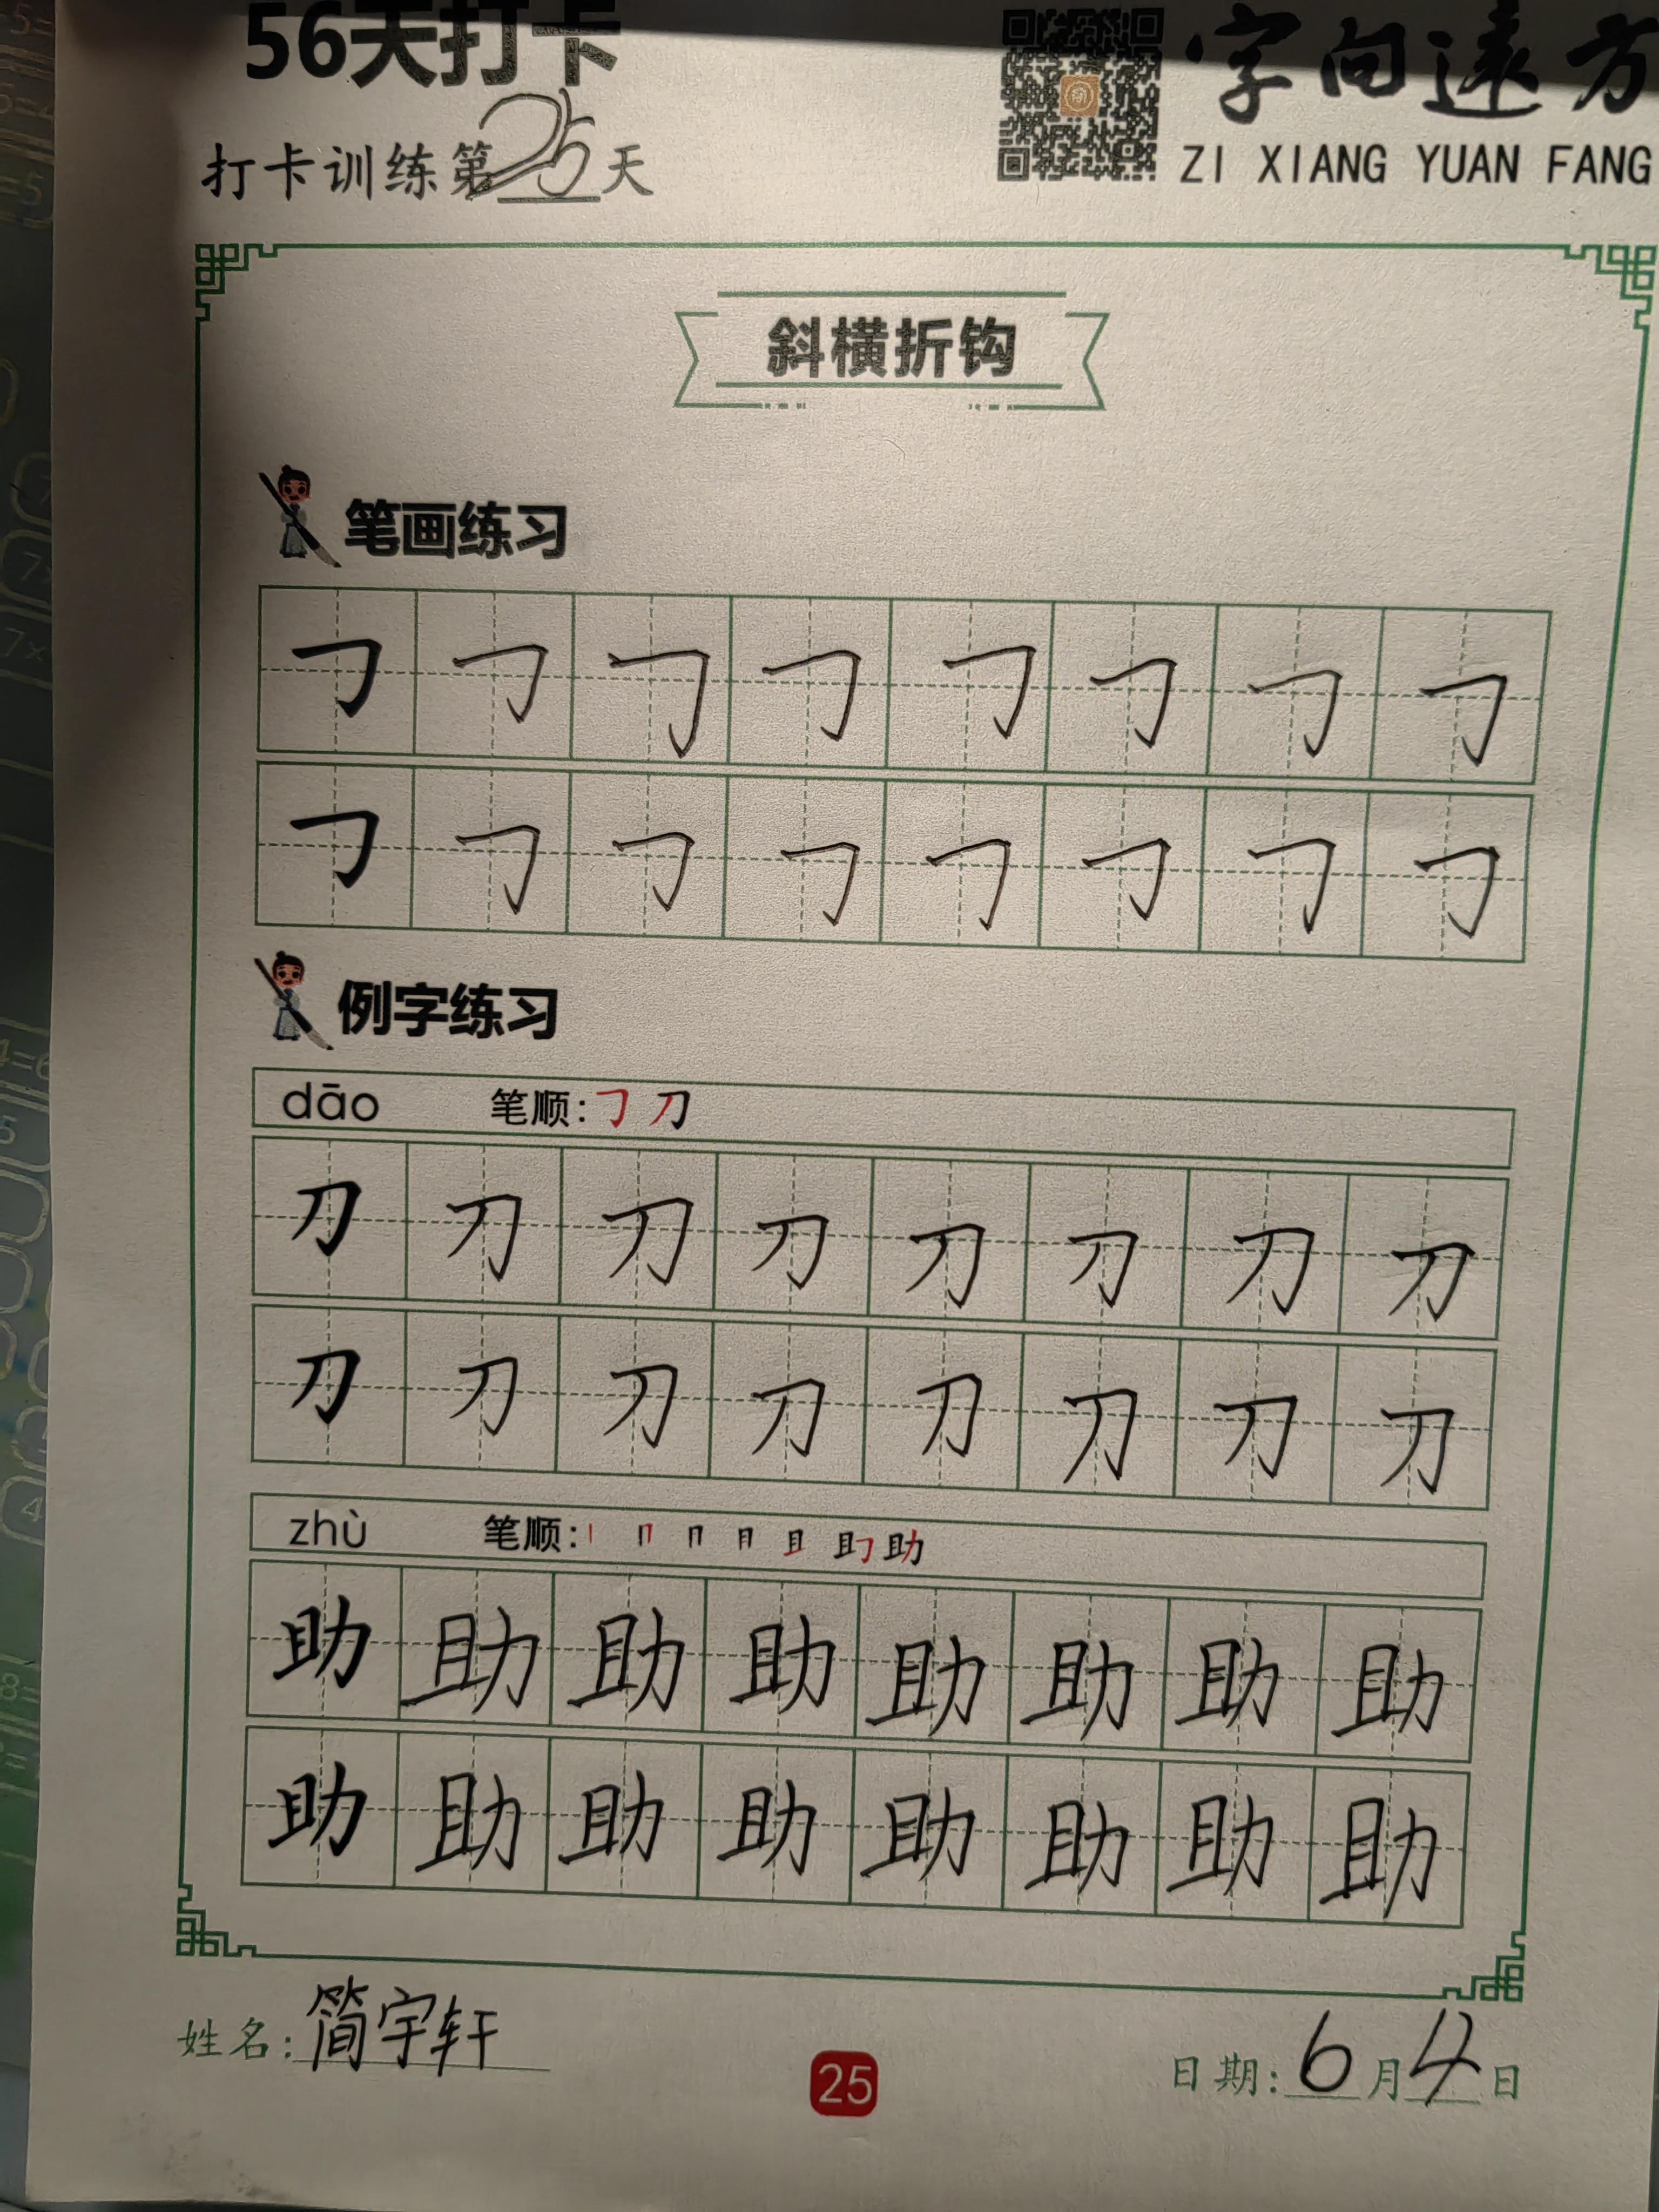 56天打卡
字向远方
打卡训练第25天
ZI XIANG YUAN FANG
斜横折钩
笔画练习
㇆ ㇆ ㇆ ㇆ ㇆ ㇆ ㇆ ㇆
㇆ ㇆ ㇆ ㇆ ㇆ ㇆ ㇆ ㇆
例字练习
dāo 笔顺:㇆ 刀
刀 刀 刀 刀 刀 刀 刀 刀
刀 刀 刀 刀 刀 刀 刀 刀
zhù 笔顺: 助
助 助 助 助 助 助 助 助
助 助 助 助 助 助 助 助
姓名:简宇轩
25
日期:6月4日